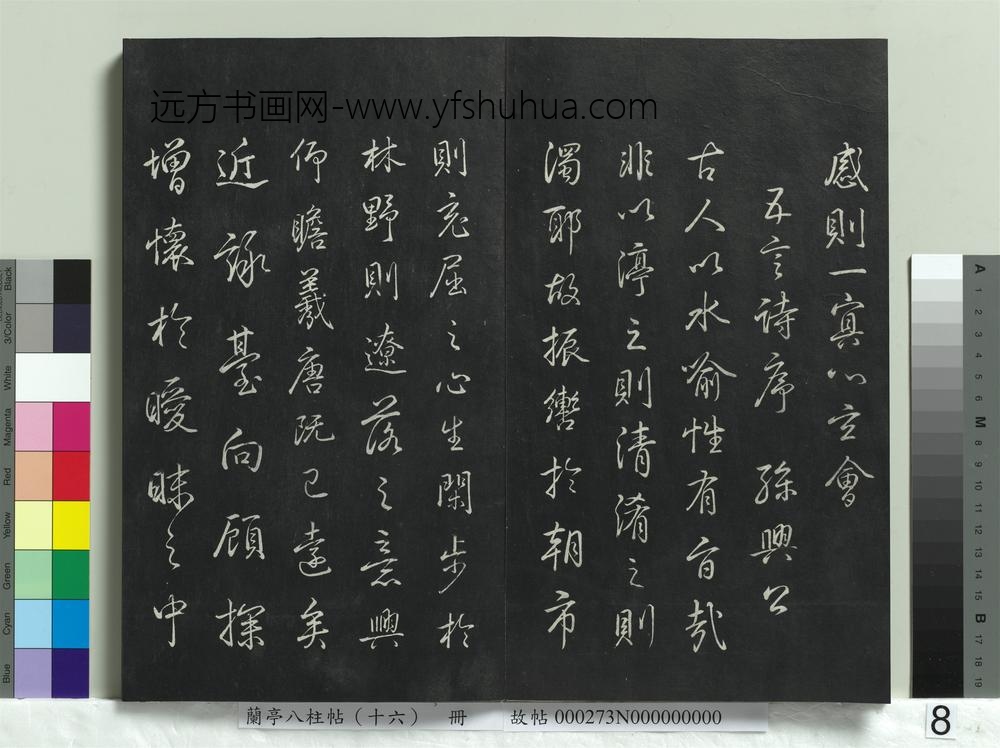 远方书画网-www.yfshuhua.com
感則一寘心玄會
五言詩序 孫興公
古人以水喻性有旨哉
非以渟之則清淆之則
濁耶故振轡於朝市
則充屈之心生閑步於
林野則遼落之意興
仰瞻羲唐既已遠矣
近詠臺閣顧探
增懷於曖昧之中
蘭亭八柱帖（十六） 冊 故帖 000273N000000000
8
Black
3/Color
White
Magenta
Red
Yellow
Green
Cyan
Blue
A 1 2 3 4 5 6 M 8 9 10 11 12 13 14 15 B 17 18 19